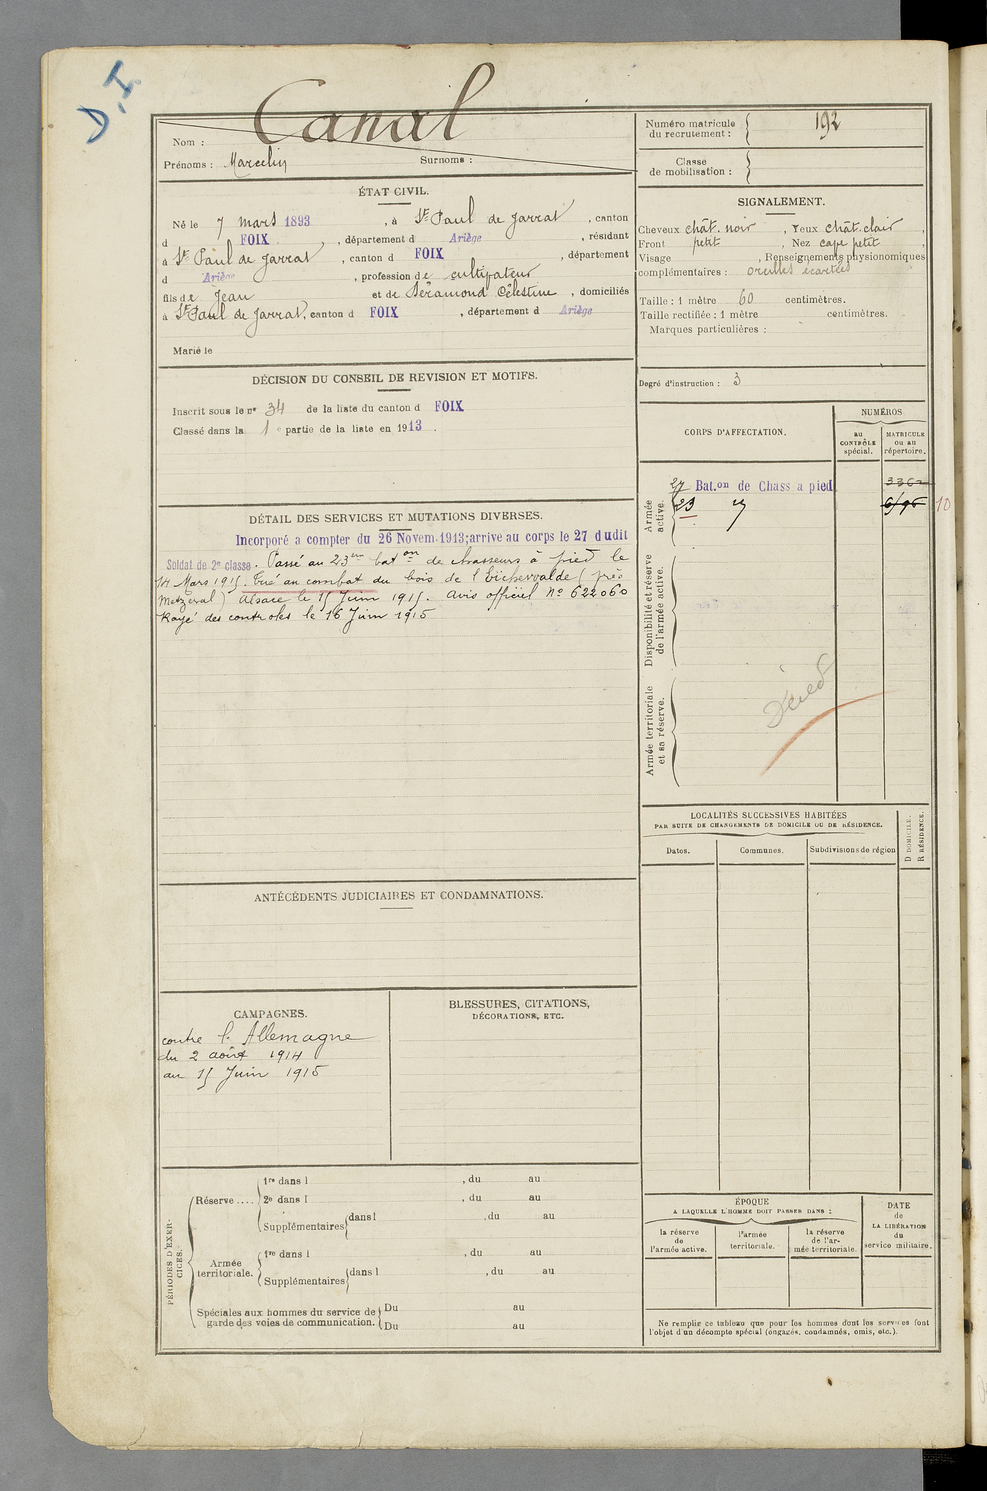 D.I.
Canal
Nom :
Prénoms : Marcelin Surnoms :
Numéro matricule du recrutement : 192
Classe de mobilisation :
ÉTAT CIVIL.
Né le 7 mars 1893, à St Paul de Jarrat, canton
d FOIX, département d Ariège, résidant
à St Paul de Jarrat, canton d FOIX, département
d Ariège, profession de cultivateur
fils de Jean et de Séramond Célestine, domiciliés
à St Paul de Jarrat, canton d FOIX, département d Ariège
Marié le
SIGNALEMENT.
Cheveux chât. noir, Yeux chât. clair
Front petit, Nez cave petit,
Visage , Renseignements physionomiques
complémentaires : oreilles écartées
Taille : 1 mètre 60 centimètres.
Taille rectifiée : 1 mètre centimètres.
Marques particulières :
Degré d'instruction : 3
DÉCISION DU CONSEIL DE REVISION ET MOTIFS.
Inscrit sous le no 34 de la liste du canton d FOIX
Classé dans la 1e partie de la liste en 1913.
CORPS D'AFFECTATION.
NUMÉROS
au CONTRÔLE spécial.
MATRICULE ou au répertoire.
Armée active.
27 Bat.on de Chass a pied
23 "
10
Disponibilité et réserve de l'armée active.
Armée territoriale et sa réserve.
DÉTAIL DES SERVICES ET MUTATIONS DIVERSES.
Incorporé a compter du 26 Novem. 1913; arrive au corps le 27 dudit
Soldat de 2e classe. Passé au 23me baton de chasseurs à pied le
14 Mars 1915. Tué au combat du bois de l'Eichervalde (près
Metzeral) Alsace le 15 Juin 1915. Avis officiel No 622060
Rayé des controles le 16 Juin 1915
LOCALITÉS SUCCESSIVES HABITÉES
PAR SUITE DE CHANGEMENTS DE DOMICILE OU DE RÉSIDENCE.
Dates. Communes. Subdivisions de région
D DOMICILE.
R RÉSIDENCE.
ANTÉCÉDENTS JUDICIAIRES ET CONDAMNATIONS.
CAMPAGNES.
contre l'Allemagne
du 2 août 1914
au 15 Juin 1915
BLESSURES, CITATIONS,
DÉCORATIONS, ETC.
PÉRIODES D'EXERCICES.
Réserve ....
1re dans l , du au
2e dans l , du au
Supplémentaires dans l , du au
Armée territoriale.
1re dans l , du au
Supplémentaires dans l , du au
Spéciales aux hommes du service de
garde des voies de communication.
Du au
Du au
ÉPOQUE
A LAQUELLE L'HOMME DOIT PASSER DANS :
la réserve de l'armée active.
l'armée territoriale.
la réserve de l'armée territoriale.
DATE de LA LIBÉRATION du service militaire.
Ne remplir ce tableau que pour les hommes dont les services font
l'objet d'un décompte spécial (engagés, condamnés, omis, etc.).